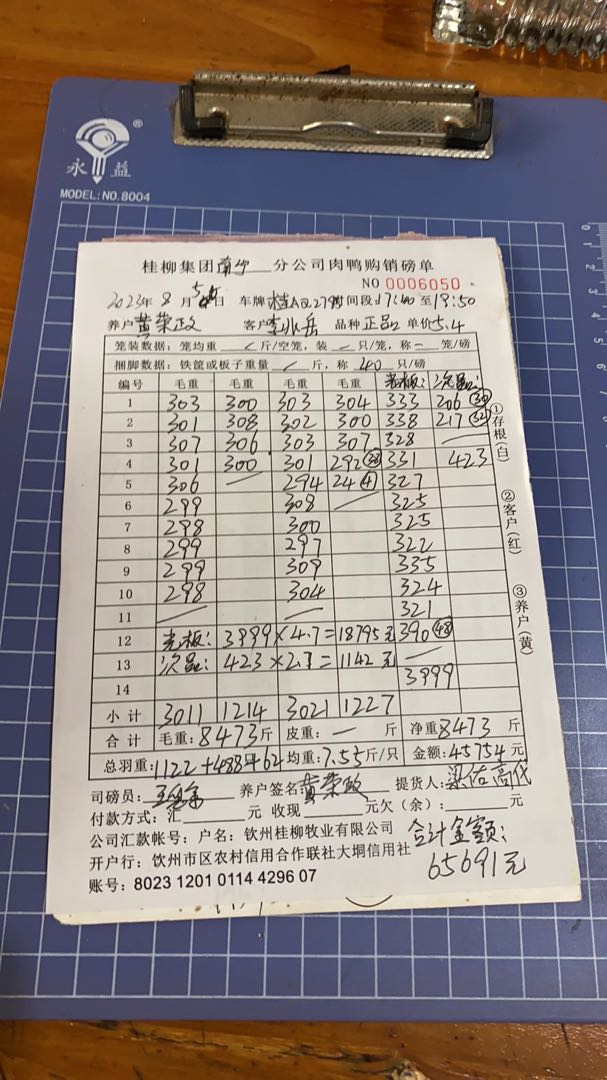 永益®
MODEL:NO.8004
桂柳集团南宁分公司肉鸭购销磅单
NO 0006050
2023年8月5日 车牌 时间段17:40至19:50
养户黄荣政 客户 品种正品 单价5.4
笼装数据：笼均重 / 斤/空笼，装 / 只/笼，称 一 笼/磅
捆脚数据：铁筐或板子重量 / 斤，称 40 只/磅
编号 毛重 毛重 毛重 毛重 光板： 次品：
1 303 300 303 304 333 206 30
2 301 308 302 300 338 217 32
3 307 306 303 307 328 —
4 301 300 301 292 38 331 423
5 306 / 294 24 4 327
6 299 308 / 325
7 298 300 325
8 299 297 322
9 299 309 335
10 298 304 324
11 / / 321
12 光板： 3999×4.7=18795元 390 48
13 次品： 423×2.7=1142元 —
14 3999
小计 3011 1214 3021 1227
合计 毛重：8473斤 皮重：— 斤 净重8473斤
总羽重：1122+488+62 均重：7.55斤/只 金额：45754元
司磅员： 养户签名：黄荣政 提货人：
付款方式：汇 元 收现 元欠（余）： 元
公司汇款帐号：户名：钦州桂柳牧业有限公司
合计金额：
开户行：钦州市区农村信用合作联社大垌信用社
65691元
账号：8023 1201 0114 4296 07
①存根(白)
②客户(红)
③养户(黄)
0
1
2
3
4
5